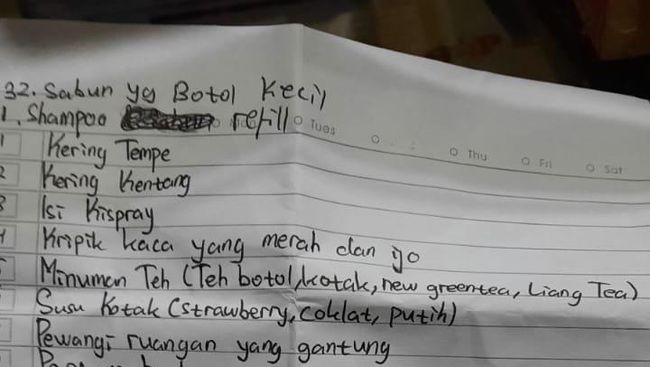 32. Sabun yg Botol Kecil
1. Shampoo refill
Tues Thu Fri Sat
1 Kering Tempe
2 Kering Kentang
3 Isi Kispray
4 Kripik kaca yang merah dan ijo
Minuman Teh (Teh botol, kotak, new greentea, Liang Tea)
Susu Kotak (strawberry, Coklat, putih)
Pewangi ruangan yang gantung